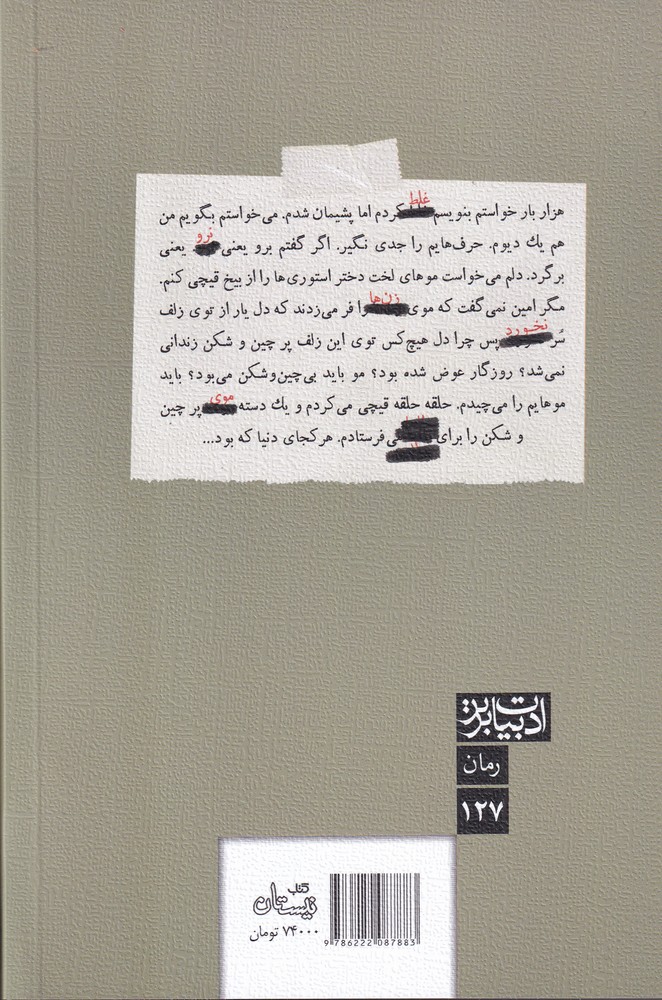 غلط
هزار بار خواستم بنویسم کردم اما پشیمان شدم. می‌خواستم بگویم من
نرو
هم یك دیوم. حرف‌هایم را جدی نگیر. اگر گفتم برو یعنی یعنی
برگرد. دلم می‌خواست موهای لخت دختر استوری‌ها را از بیخ قیچی کنم.
زن‌ها
مگر امین نمی‌گفت که موی را فر می‌زدند که دل یار از توی زلف
نخورد
سُر پس چرا دل هیچ‌کس توی این زلف پر چین و شکن زندانی
نمی‌شد؟ روزگار عوض شده بود؟ مو باید بی‌چین‌وشکن می‌بود؟ باید
موی
موهایم را می‌چیدم. حلقه حلقه قیچی می‌کردم و یك دسته پر چین
و شکن را برای می‌فرستادم. هرکجای دنیا که بود...
ادبیات برتر
رمان
۱۲۷
کتاب
نیستان
۷۴۰۰۰ تومان
9 786222 087883